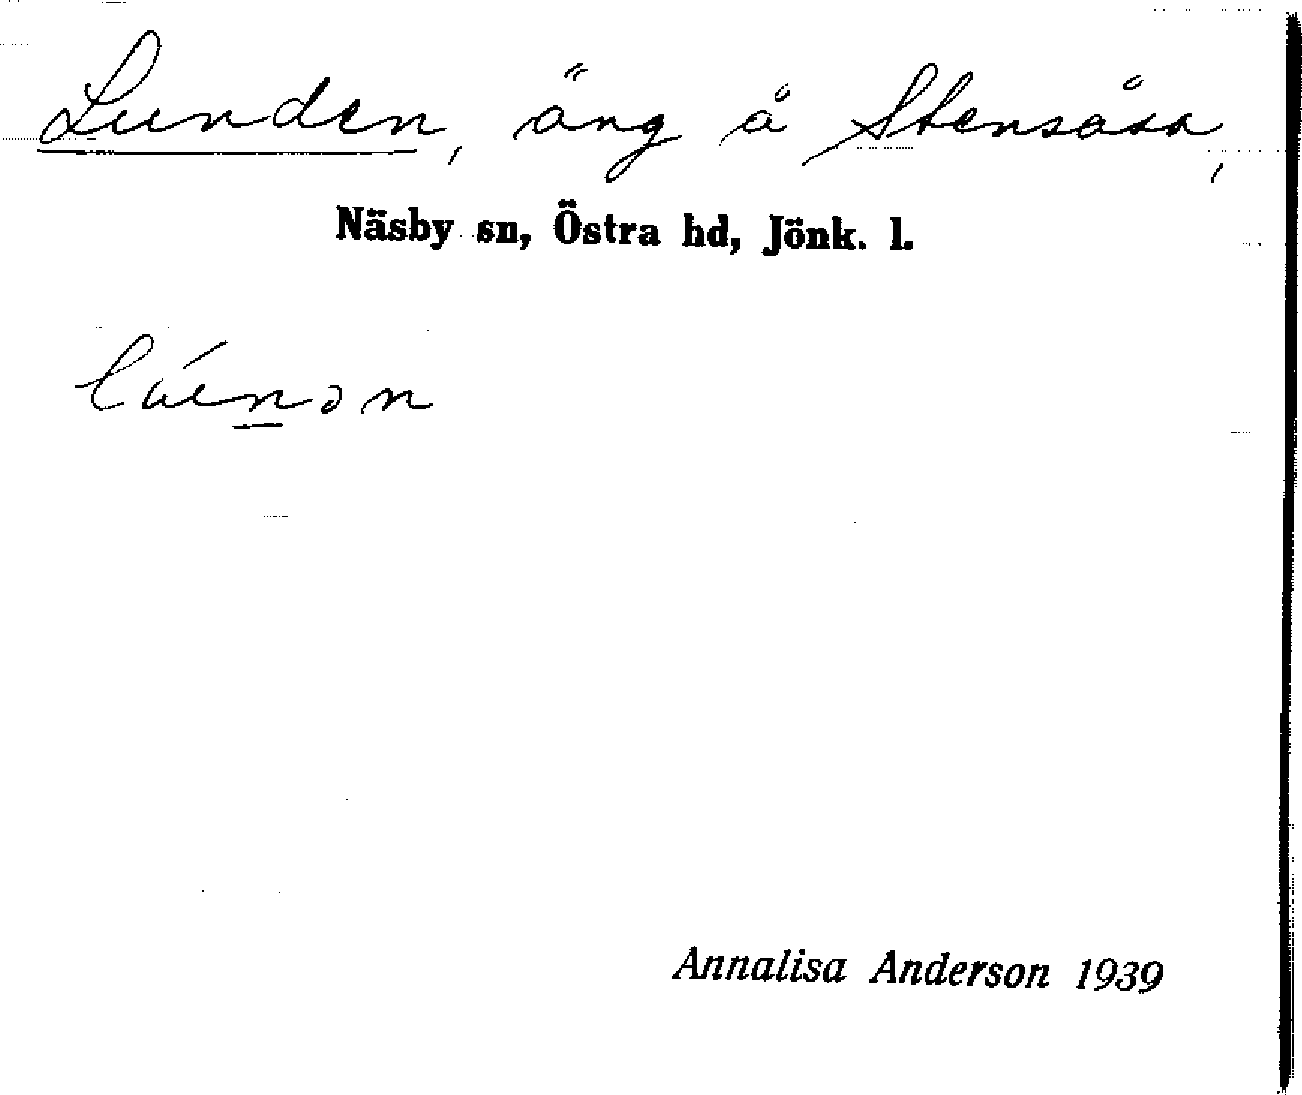 Lunden, äng å Stensåsa,
Näsby sn, Östra hd, Jönk. l.
Annalisa Anderson 1939